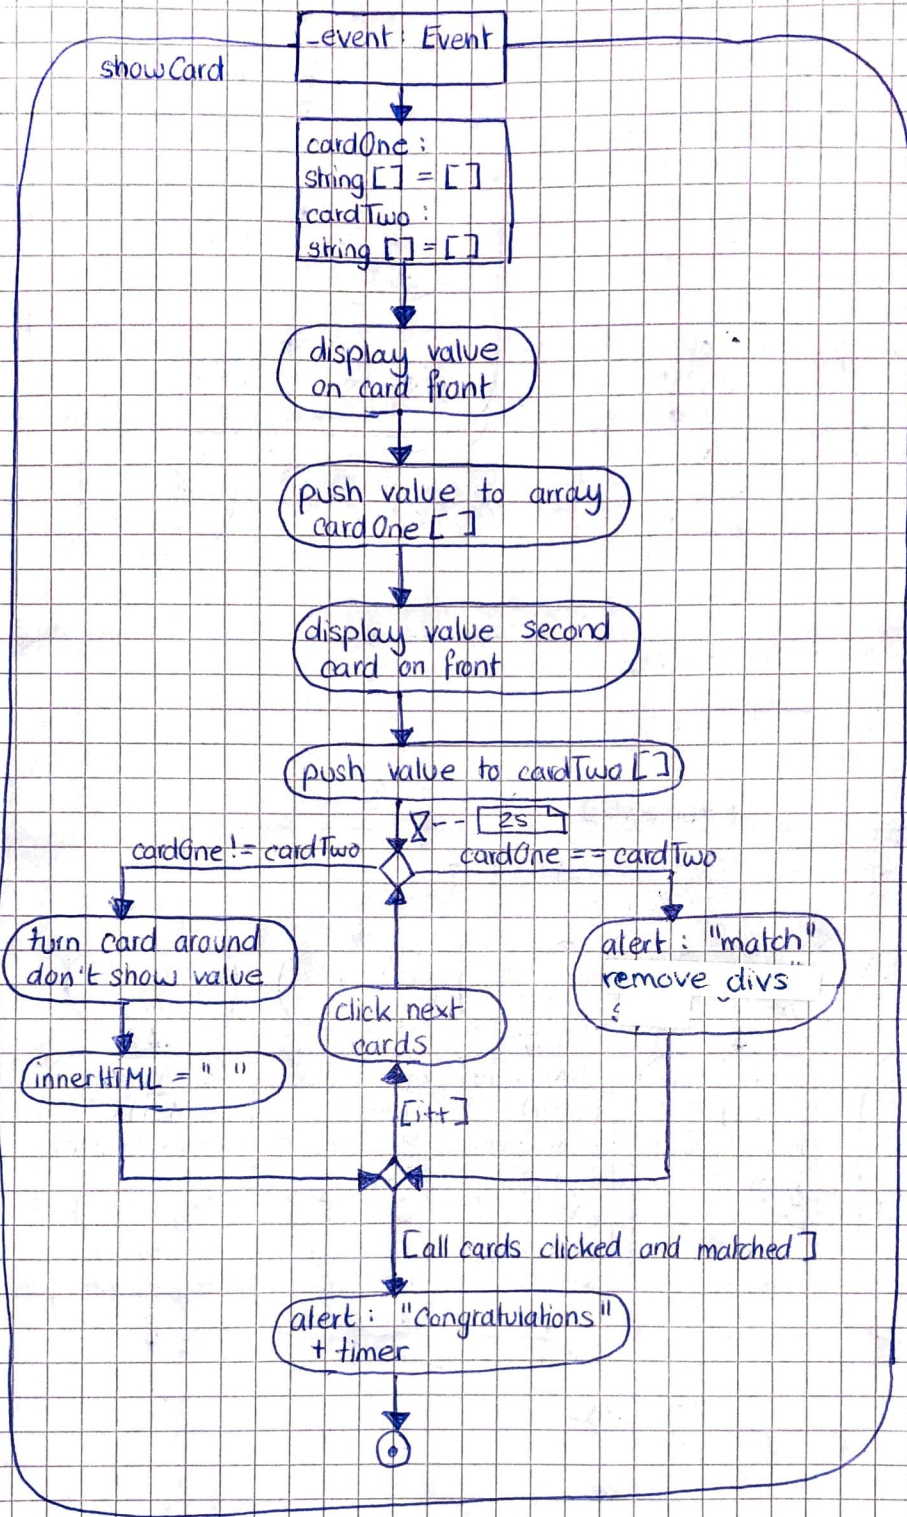 _event: Event
showCard
cardOne :
string [ ] = [ ]
cardTwo :
string [ ] = [ ]
display value
on card front
push value to array
cardOne [ ]
display value second
card on front
push value to cardTwo [ ]
2s
cardOne != cardTwo
cardOne == cardTwo
turn card around
don't show value
alert : "match"
remove divs
click next
cards
innerHTML = " "
[i++]
[all cards clicked and matched]
alert : "Congratulations"
+ timer